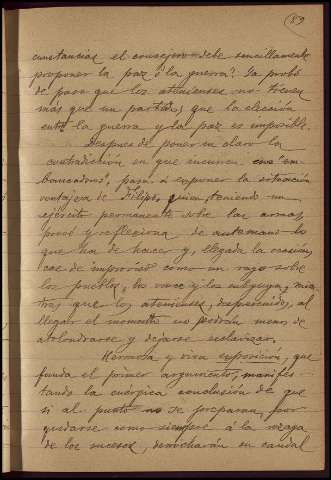 (89
cunstancias el consejero debe sencillamente
proponer la paz ó la guerra? Ya probó
de paso que los atenienses no tienen
más que un partido, que la elección
entre la guerra y la paz es imposible.
Despues de poner en claro la
contradicción en que incurren
pasa á exponer la situación
ventajosa de Filipo, quien teniendo un
ejército permanente sobre las armas,
prevé y reflexiona de antemano lo
que ha de hacer y, llegada la ocasión,
cae de improviso como un rayo sobre
los pueblos, los vence y los subyuga, mien
tras que los atenienses, desprevenidos, al
llegar el momento no podrán menos de
atolondrarse y dejarse esclavizar.
Hermosa y viva exposición, que
funda el primer argumento, manifes-
tando la enérgica conclusión de que
si al punto no se preparan, por
quedarse como siempre á la zaga
de los sucesos, derrocharán su caudal